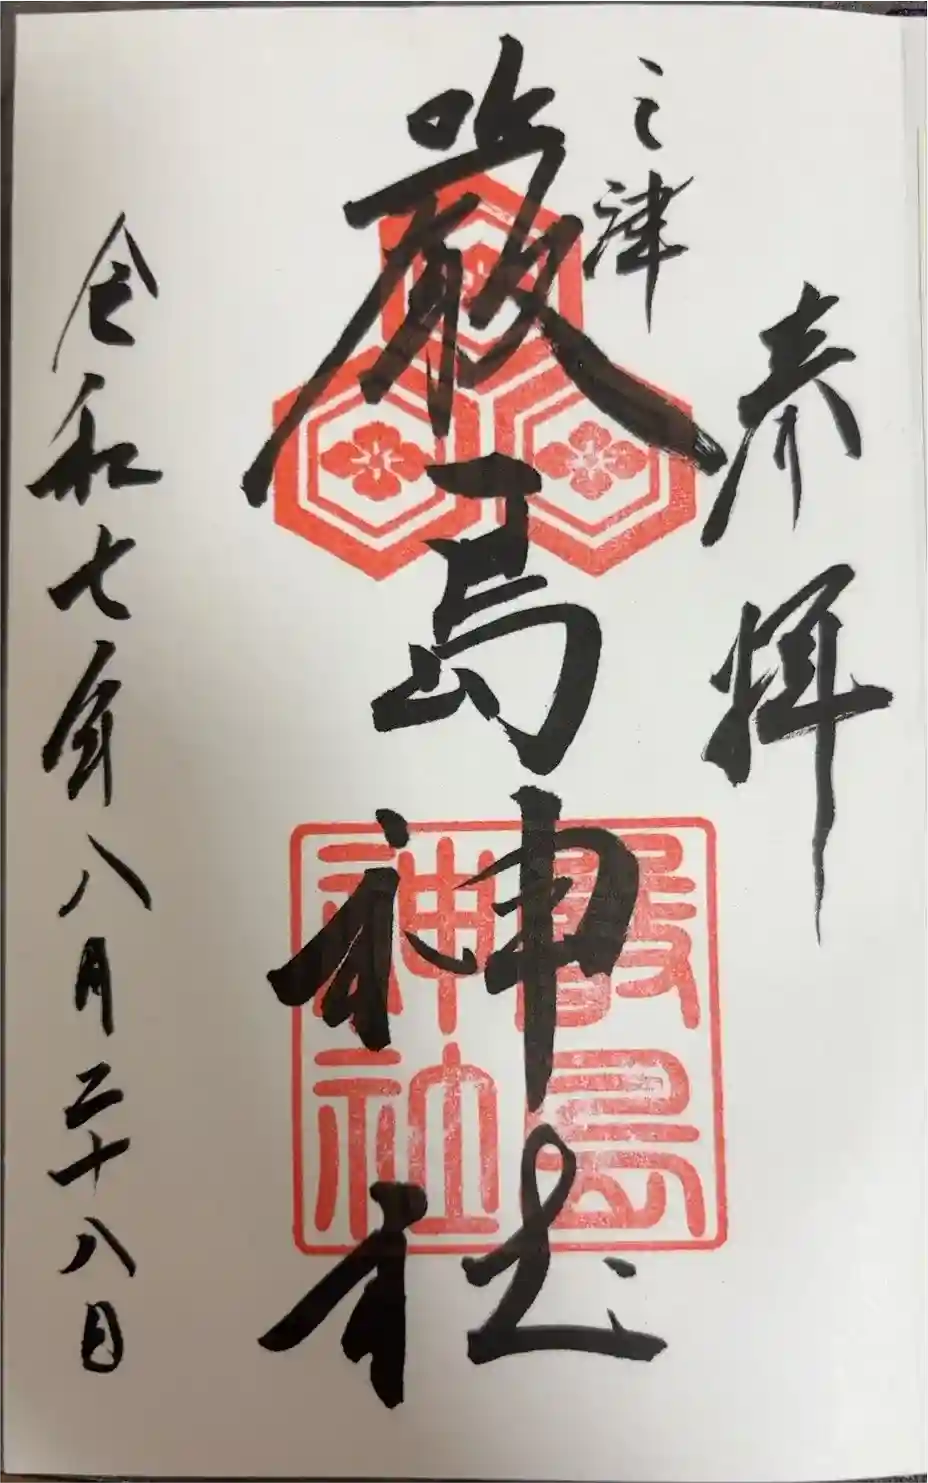 奉拝
三津
嚴島神社
嚴島
神社
令和七年八月二十八日